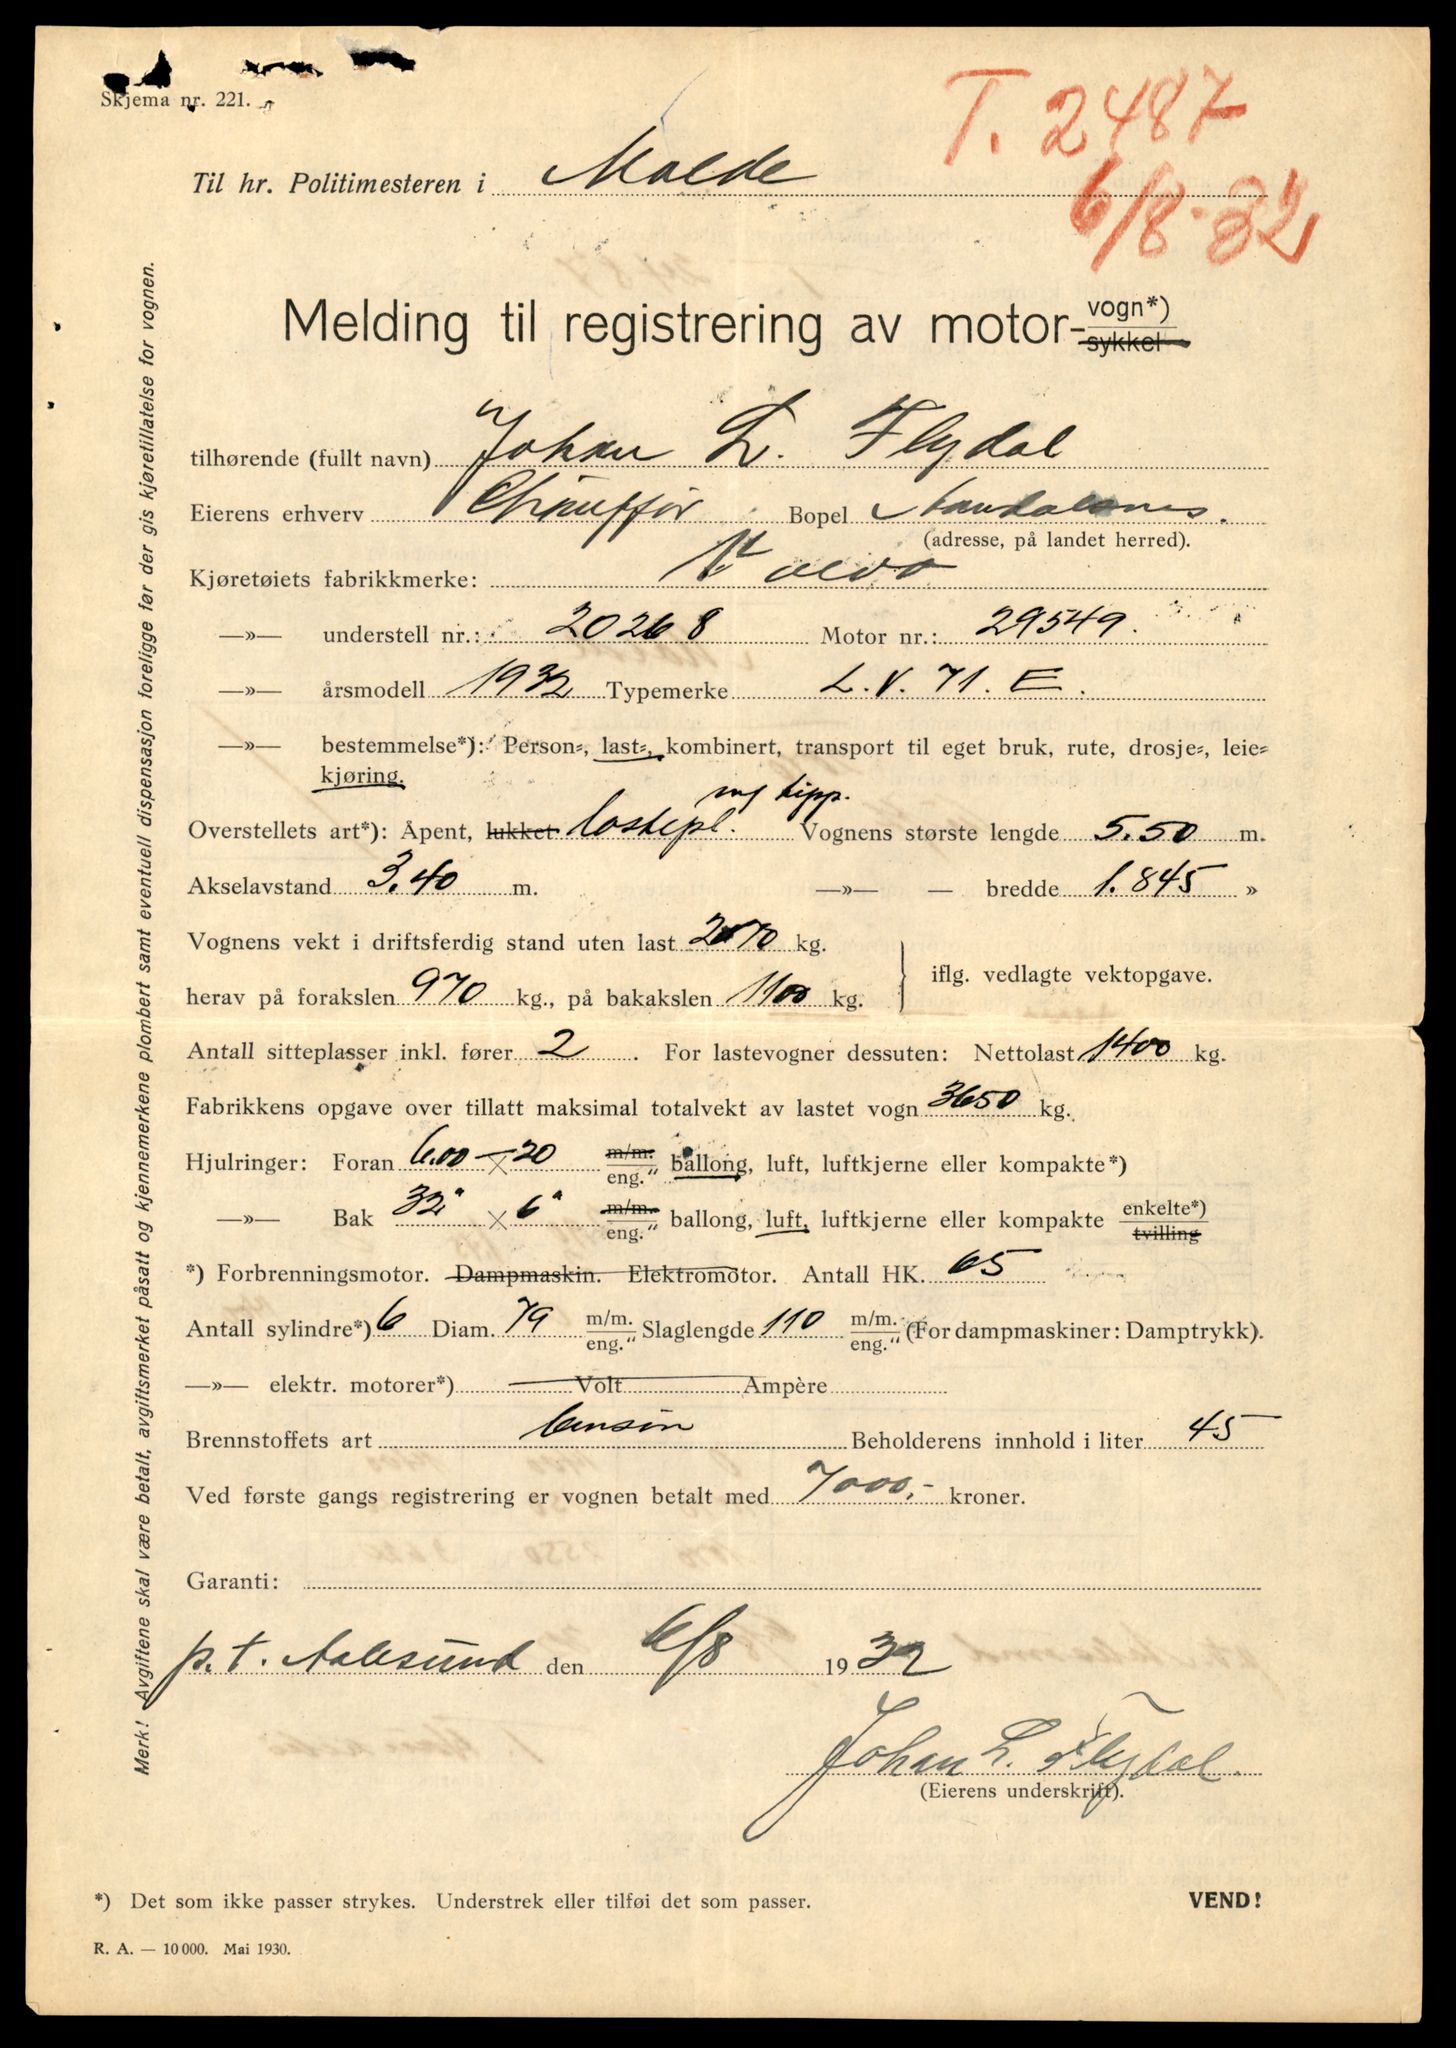 Skjema nr. 221.
T. 2487
6/8-32
Til hr. Politimesteren i Molde
Melding til registrering av motor-vogn*)
sykkel
tilhørende (fullt navn) Johan L. Flydal
Eierens erhverv Chauffør Bopel Aandalsnes.
(adresse, på landet herred).
Kjøretøiets fabrikkmerke: Volvo
—»— understell nr.: 20268 Motor nr.: 29549.
—»— årsmodell 1932 Typemerke L.V. 71. E.
—»— bestemmelse*): Person-, last-, kombinert, transport til eget bruk, rute, drosje-, leie-
kjøring.
m/ tipp.
Overstellets art*): Åpent, lukket lastepl. Vognens største lengde 5.50 m.
Akselavstand 3.40 m. —»— — bredde 1.845 »
Vognens vekt i driftsferdig stand uten last 2070 kg.
herav på forakslen 970 kg., på bakakslen 1100 kg. iflg. vedlagte vektopgave.
Antall sitteplasser inkl. fører 2. For lastevogner dessuten: Nettolast 1400 kg.
Fabrikkens opgave over tillatt maksimal totalvekt av lastet vogn 3650 kg.
Hjulringer: Foran 6.00 × 20 m/m. eng." ballong, luft, luftkjerne eller kompakte*)
—»— Bak 32" × 6" m/m. eng." ballong, luft, luftkjerne eller kompakte enkelte*) tvilling
*) Forbrenningsmotor. Dampmaskin. Elektromotor. Antall HK. 65
Antall sylindre*) 6 Diam. 79 m/m. eng." Slaglengde 110 m/m. eng." (For dampmaskiner: Damptrykk).
—»— elektr. motorer*) Volt Ampère
Brennstoffets art bensin Beholderens innhold i liter 45
Ved første gangs registrering er vognen betalt med 7000,- kroner.
Garanti:
p.t. Aalesund den 6/8 1932
Johan L. Flydal.
(Eierens underskrift).
*) Det som ikke passer strykes. Understrek eller tilføi det som passer. VEND!
R. A. — 10 000. Mai 1930.
Merk! Avgiftene skal være betalt, avgiftsmerket påsatt og kjennemerkene plombert samt eventuell dispensasjon forelige før der gis kjøretillatelse for vognen.